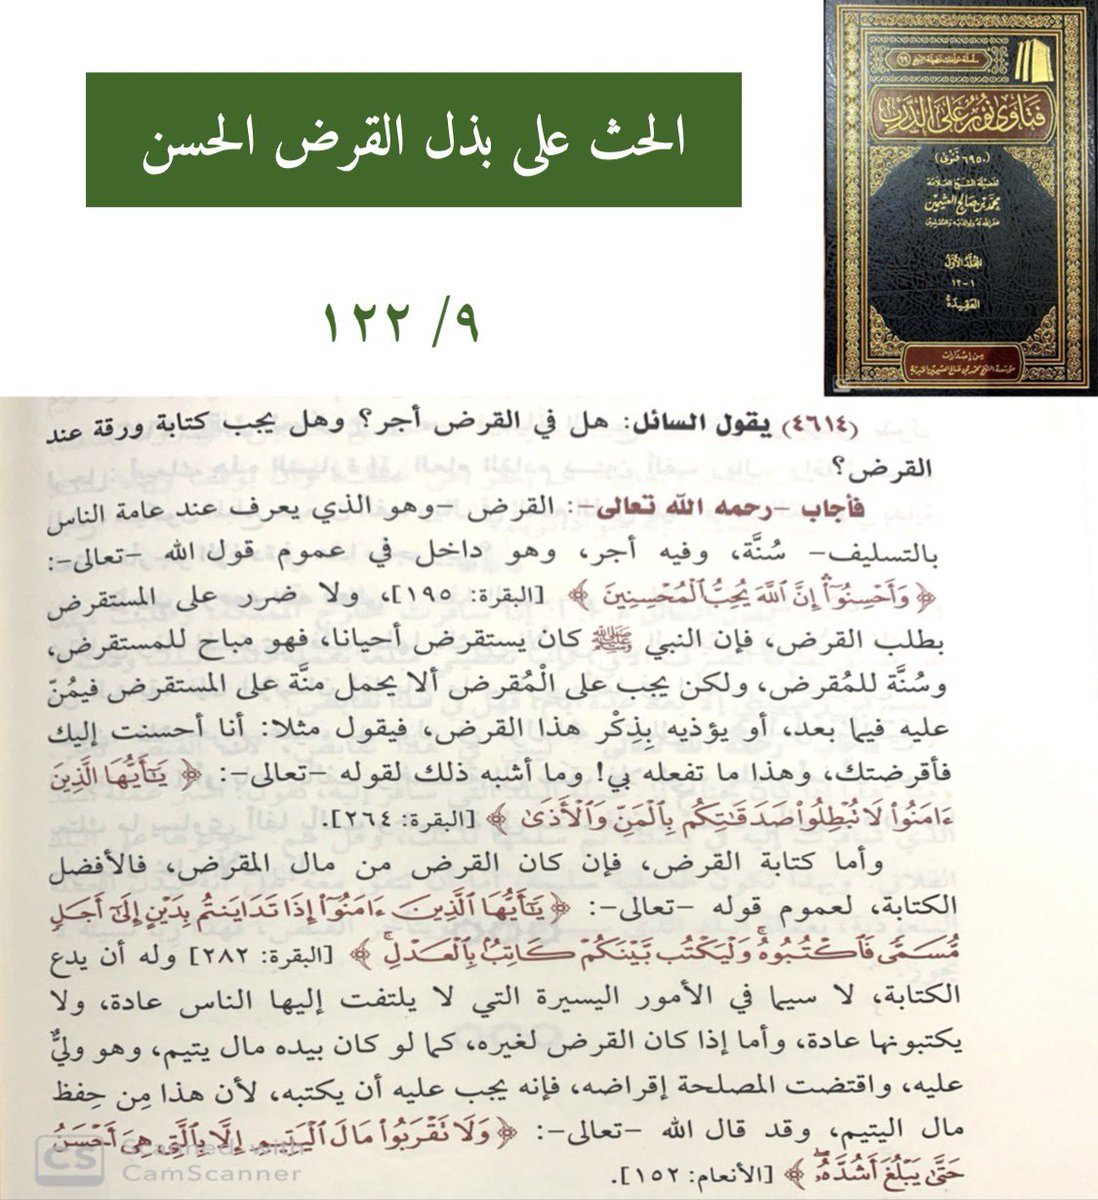 الحث على بذل القرض الحسن
٩/ ١٢٢
فتاوى نور على الدرب
(٦٩٥٠ فتوى)
لفضيلة الشيخ العلامة
محمد بن صالح العثيمين
غفر الله له ولوالديه وللمسلمين
المجلد الأول
١-١٢
العقيدة
من إصدارات
مؤسسة الشيخ محمد بن صالح العثيمين الخيرية
(٤٦١٤) يقول السائل: هل في القرض أجر؟ وهل يجب كتابة ورقة عند
القرض؟
فأجاب –رحمه الله تعالى–: القرض –وهو الذي يعرف عند عامة الناس
بالتسليف– سُنَّة، وفيه أجر، وهو داخل في عموم قول الله –تعالى–:
﴿وَأَحْسِنُوٓا۟ إِنَّ ٱللَّهَ يُحِبُّ ٱلْمُحْسِنِينَ﴾ [البقرة: ١٩٥]، ولا ضرر على المستقرض
بطلب القرض، فإن النبي ﷺ كان يستقرض أحيانا، فهو مباح للمستقرض،
وسُنَّة للمُقرض، ولكن يجب على الْمُقرض ألا يحمل منَّة على المستقرض فيمُنّ
عليه فيما بعد، أو يؤذيه بِذِكْر هذا القرض، فيقول مثلا: أنا أحسنت إليك
فأقرضتك، وهذا ما تفعله بي! وما أشبه ذلك لقوله –تعالى–: ﴿يَٰٓأَيُّهَا ٱلَّذِينَ
ءَامَنُوا۟ لَا تُبْطِلُوا۟ صَدَقَٰتِكُم بِٱلْمَنِّ وَٱلْأَذَىٰ﴾ [البقرة: ٢٦٤].
وأما كتابة القرض، فإن كان القرض من مال المقرض، فالأفضل
الكتابة، لعموم قوله –تعالى–: ﴿يَٰٓأَيُّهَا ٱلَّذِينَ ءَامَنُوٓا۟ إِذَا تَدَايَنتُم بِدَيْنٍ إِلَىٰٓ أَجَلٍ
مُّسَمًّى فَٱكْتُبُوهُ ۚ وَلْيَكْتُب بَّيْنَكُمْ كَاتِبٌۢ بِٱلْعَدْلِ ۚ﴾ [البقرة: ٢٨٢] وله أن يدع
الكتابة، لا سيما في الأمور اليسيرة التي لا يلتفت إليها الناس عادة، ولا
يكتبونها عادة، وأما إذا كان القرض لغيره، كما لو كان بيده مال يتيم، وهو وليٌّ
عليه، واقتضت المصلحة إقراضه، فإنه يجب عليه أن يكتبه، لأن هذا مِن حِفظ
مال اليتيم، وقد قال الله –تعالى–: ﴿وَلَا تَقْرَبُوا۟ مَالَ ٱلْيَتِيمِ إِلَّا بِٱلَّتِى هِىَ أَحْسَنُ
حَتَّىٰ يَبْلُغَ أَشُدَّهُۥ ۖ﴾ [الأنعام: ١٥٢].
CS Scanned with
CamScanner